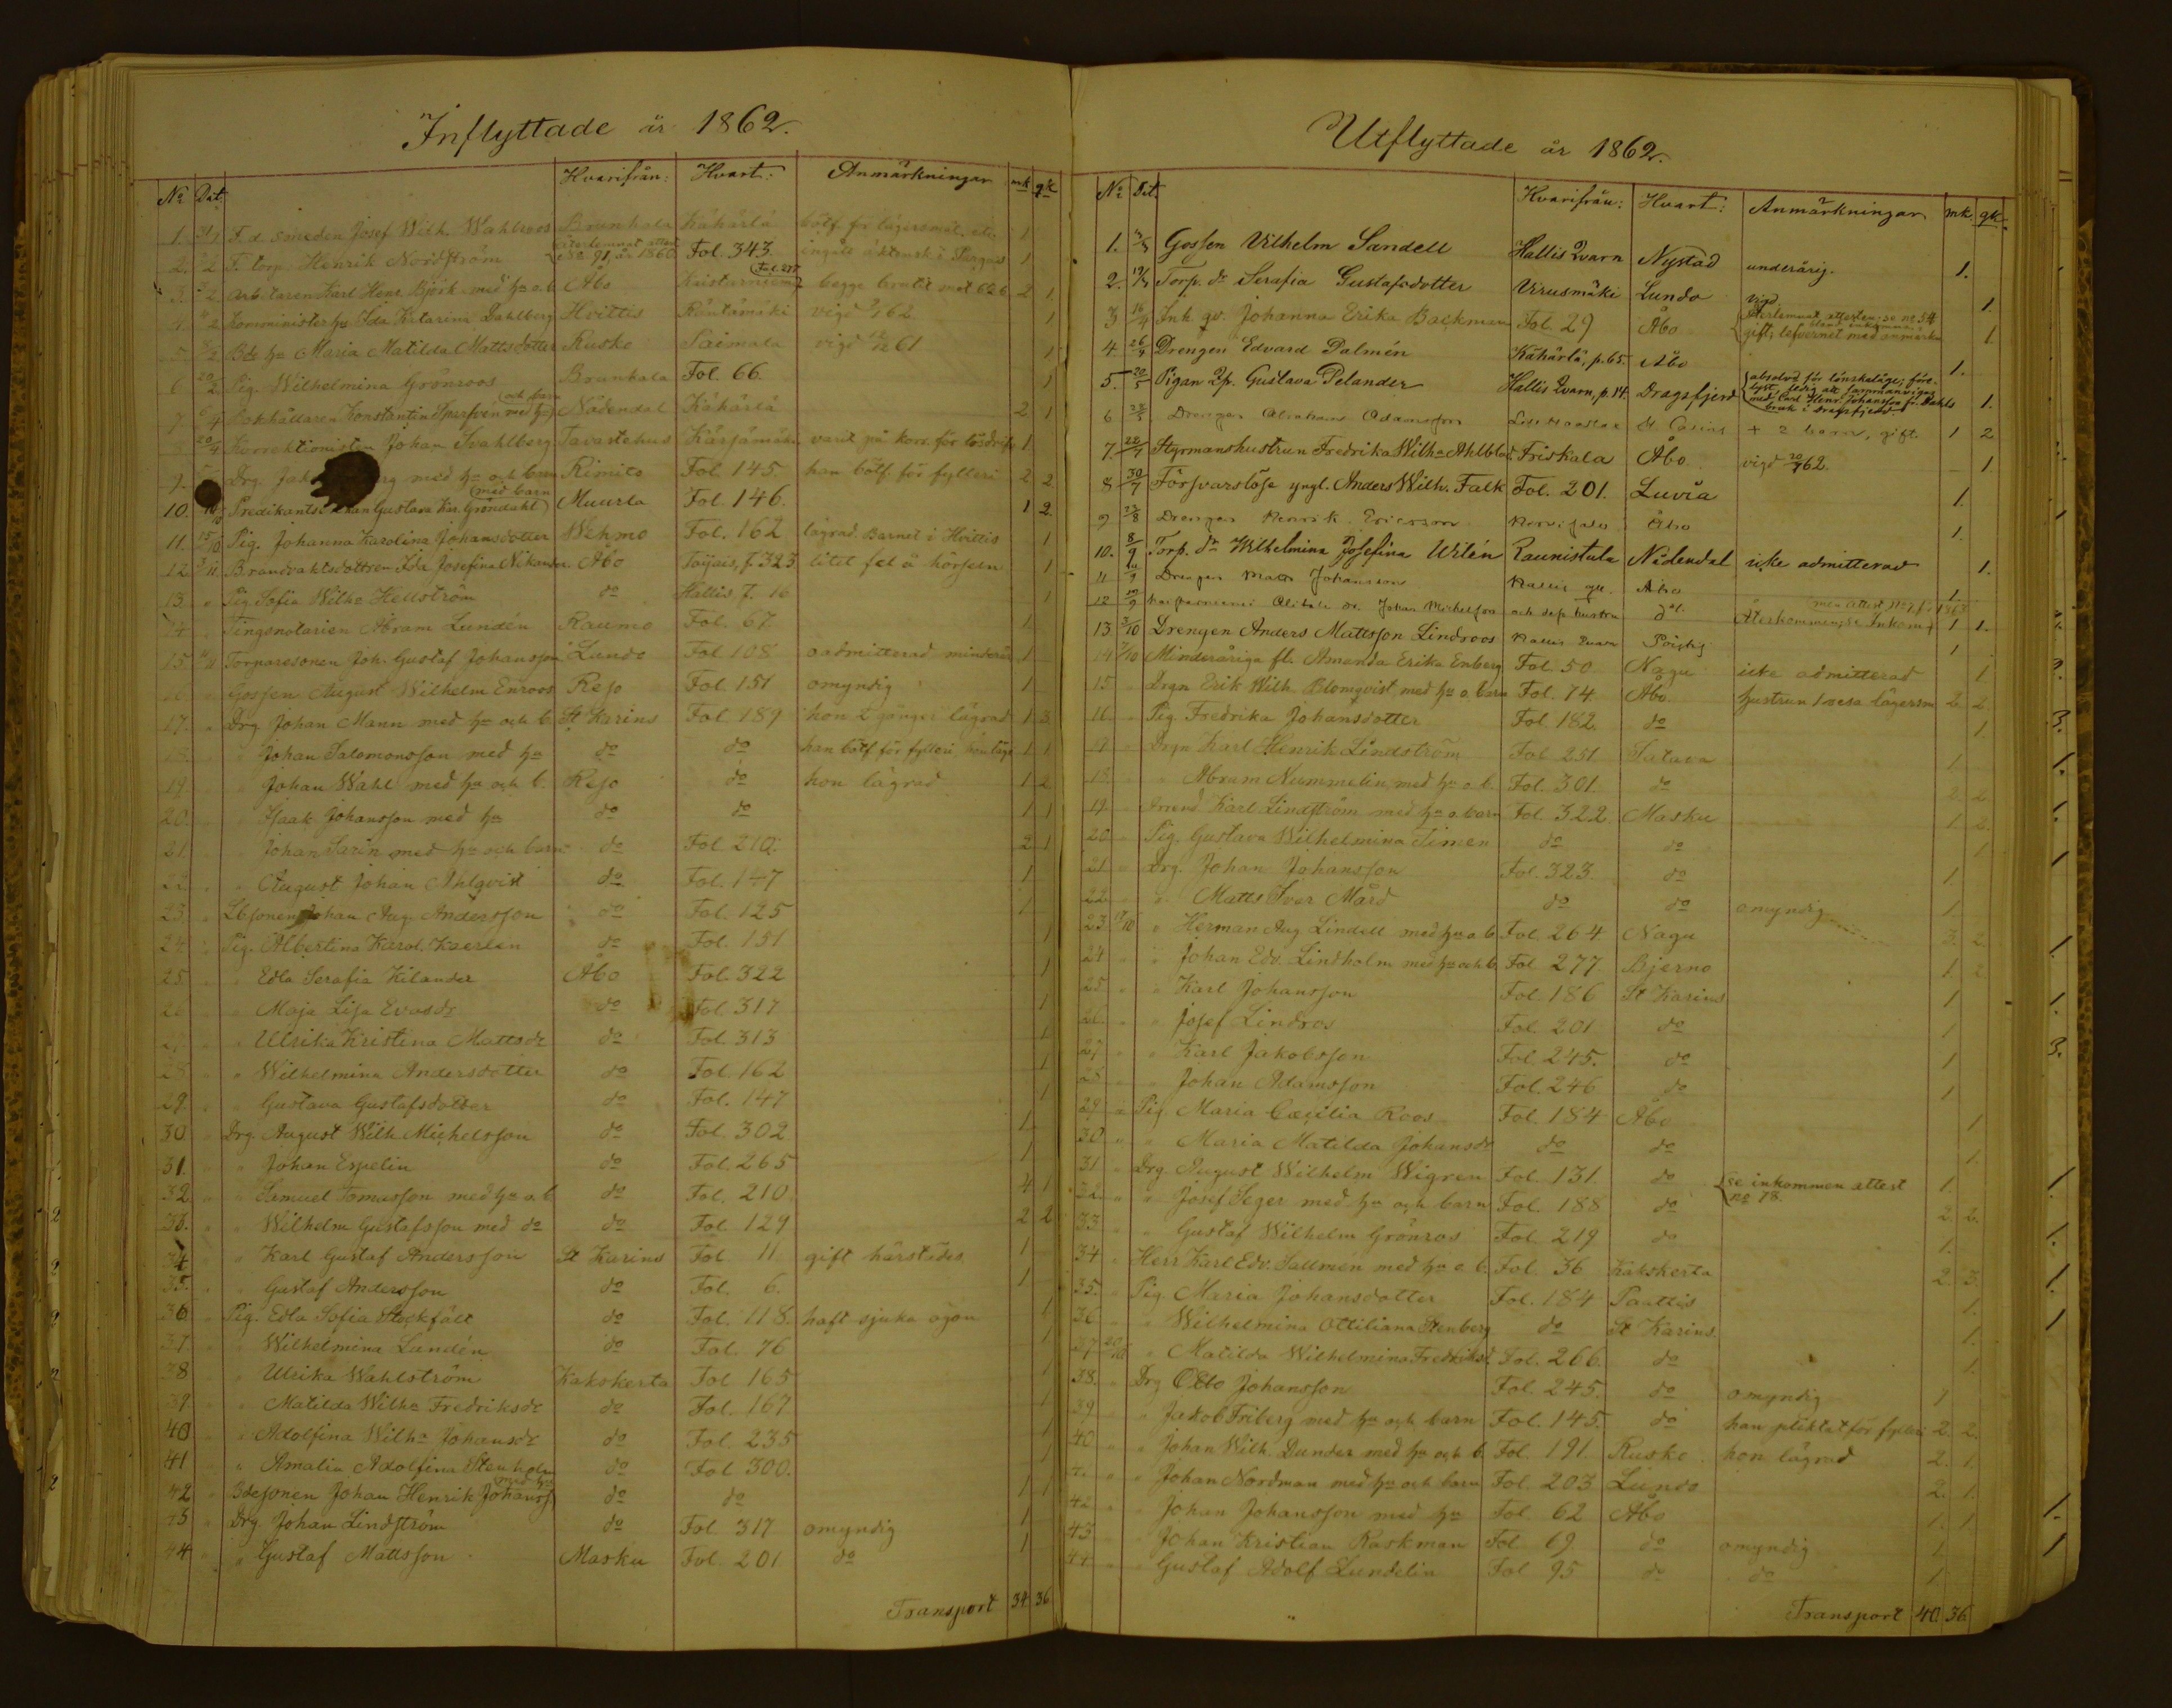 Inflyttade år 1862.
No Dat. Hvarifrån: Hvart: Anmärkningar mk qk
1. 31/1 F. d. smeden Josef Wilh. Wahlroos Brunkala Kähärlä bötf. för lägersmål. 1
2. F. torp. Henrik Nordström återlemnat attest No 91, år 1860 Fol. 343. 1
3. Arbetaren Karl Henr. Björk med hu o. b. Åbo begge brutit mot 6 b. 2 1.
4. Komministerhu Ida Katarina Dahlberg Hvittis Räntämäki vigd 62. 1
5. Bde hu Maria Matilda Mattsdotter Rusko Saimala vigd 61 1
6 20/2 Pig. Wilhelmina Grönroos Brunkala Fol. 66. 1
7 Bokhållaren Konstantin med hu och barn Nådendal Kähärlä 2 1
20/4 Korrektionisten Johan Svahlberg Tavastehus Kärsämäki varit på korr. för lösdrif. 1
9. Drg. med hu och barn Rimito Fol. 145 han bötf. för fylleri 2 2
10. Predikants Gustava Kar. Gröndahl med barn Muurla Fol. 146. 1 2
11. 15/10 Pig. Johanna Karolina Johansdotter Wehmo Fol. 162 lägrad. Barnet i Hvittis 1
12. Brandvaktsdottren Ida Josefina Nikander Åbo f. 323 litet fel å hörseln 1
13. " Pig Sofia Wilha Hellström do Hallis f. 16 1
14 Tingsnotarien Abram Lundén Raumo Fol. 67 1
15. Torparesonen Joh. Gustaf Johansson Lundo Fol 108 oadmitterad minderår. 1
16 " Gossen August Wilhelm Enroos Reso Fol. 151 omyndig 1
17. " Drg Johan Mann med hu och b. St Karins Fol 189 hon 2 gånger lägrad 1 3
18. Johan Salomonsson med hu do do han bötf för fylleri, hon lägr. 1 1
19. Johan Wahl med hu och b. Reso do hon lägrad 1 2
20. Isaak Johansson med hu do do 1 1
21. Johan Sarin med hu och barn do Fol 210. 2 1
22. " August Johan Ahlqvist do Fol. 147 1
23. " Johan Aug. Andersson do Fol. 125 1
24. Pig. Albertina Karol. Kaerlen do Fol. 151 1
25. Edla Serafia Kilander Åbo Fol. 322 1
26 " Maja Lisa Evasdr do Fol. 317 1
27. " Ulrika Kristina Mattsdr do Fol. 313 1
28. " Wilhelmina Andersdotter do Fol. 162 1
29. " Gustava Gustafsdotter do Fol. 147 1
30. " Drg August Wilh. Michelsson do Fol. 302 1
31. " Johan Espelin do Fol. 265 1
32. " Samuel Tomasson med hu o. b do Fol. 210 4 1
33. " Wilhelm Gustafsson med do do Fol. 129 2 2
34 " Karl Gustaf Andersson St Karins Fol. 11. gift härstädes 1
35. " Gustaf Andersson do Fol. 6. 1
36 Pig. Edla Sofia Stockfält do Fol. 118. haft sjuka ögon 1
37 Wilhelmina Lundén do Fol. 76 1
38 Ulrika Wahlström Kakskerta Fol 165 1
39 " Matilda Wilha Fredriksdr do Fol. 167 1
40 " Adolfina Wilha Johansdr do Fol. 235 1
41 " Amalia Adolfina Stenholm do Fol 300. 1
42 " Johan Henrik Johanss. med hu do do 1 1
43 " Drg. Johan Lindström do Fol. 317 omyndig 1
44 " " Gustaf Mattsson Masku Fol. 201 do 1
Transport 34 36
Utflyttade år 1862.
No Dat. Hvarifrån: Hvart: Anmärkningar mk. qk.
1. Gossen Vilhelm Sandell Hallis Qvarn Nystad underårig. 1.
2. Torp. dr Serafia Gustafsdotter Virusmäki Lundo vigd. 1.
3 16/4 Inh. qv. Johanna Erika Backman Fol. 29 Åbo Återlemnat attesten; se no 54 bland inkomna. gift; lefvernet med anmärkn. 1
4. 26/4 Drengen Edvard Palmén Kähärlä, p. 65. Åbo 1.
5. 20/5 Pigan Gustava Pelander Hallis Qvarn, p. 14. Dragsfjerd absolvd för lönskaläge; före- lyst, ledig att sammanvigas med Carl Henr. Johansson fr. Dahls bruk i Dragsfjerd 1.
6 Drengen Abraham Adamsson St Carins + 2 barn, gift. 1 2
7. Styrmanshustrun Fredrika Wilha Ahlblad Friskala Åbo vigd 62. 1.
8 30/7 Försvarslöse yngl. Anders Wilh. Falk Fol. 201. Luvia 1.
9 Drengen Henrik Ericsson Åbo 1.
10. 8/9 Torp. dr Wilhelmina Josefina Wilén Raunistula Nådendal icke admitterad 1.
11 Drengen Mats Johansson Åbo 1.
12 Johan Michelsson och dess hustru do men attest No 2 f. 1863 Återkommen, se Inkom. 1 1.
13. 3/10 Drengen Anders Mattsson Lindroos Hallis Qvarn 1
14 7/10 Minderåriga fl. Amanda Erika Enberg Fol. 50 Nagu icke admitterad 1
15 Drgn Erik Wilh. Blomqvist med hu o. barn Fol. 74. Åbo. hustrun lägersm. 2. 2.
16. Pig. Fredrika Johansdotter Fol. 182. do 1.
17 Drgn Karl Henrik Lindström Fol. 251 1
18. " Abram Nummelin, med hu o. b. Fol. 301. do 2. 2
19. Karl Lindström med hu o. barn Fol. 322. Masku 1. 2.
20 Pig. Gustava Wilhelmina Timen do do 1
21. Drg. Johan Johansson Fol. 323. do 1.
22. " Matts Ivar Mård do do omyndig 1
23 17/10 " Herman Aug. Lindell med hu o b Fol. 264 Nagu 3. 2.
24 " Johan Edv. Lindholm med hu och b. Fol. 277 Bjerno 1. 2
25 " Karl Johansson Fol. 186 St Karins 1
26. Josef Lindros Fol. 201 do 1
27 " Karl Jakobsson Fol. 245. do 1
28 Johan Adamsson Fol. 246 do 1
29 Pig. Maria Cæcilia Roos Fol. 184 Åbo 1
30 " " Maria Matilda Johansdr do do 1.
31 Drg August Wilhelm Wigren Fol. 131. do se inkommen attest no 78. 1.
32 " Josef Seger med hu och barn Fol. 188 do 2. 2.
33 Gustaf Wilhelm Grönros Fol. 219 do 1.
34 Herr Karl Edv. Sallmén med hu o. b. Fol. 36 Kakskerta 2. 3.
35. Pig. Maria Johansdotter Fol. 184 Paattis 1.
36. Wilhelmina Ottiliana Stenberg do St Karins. 1.
37 20/10 " Matilda Wilhelmina Fredriksd. Fol. 266. do 1.
38. Drg Otto Johansson Fol. 245. do omyndig 1
39 " Jakob Friberg med hu och barn Fol. 145. do han pliktat för fylleri 2. 2.
40 Johan Wilh. Dunder med hu och b. Fol. 191. Rusko hon lägrad 2. 1.
Johan Nordman med hu och barn Fol. 203 Lundo 2. 1.
42 Johan Johansson med hu Fol. 62 Åbo 1. 1
43 Johan Kristian Raskman Fol 69. do omyndig 1
44 Gustaf Adolf Lundelin Fol 95 do do 1
Transport 40. 36